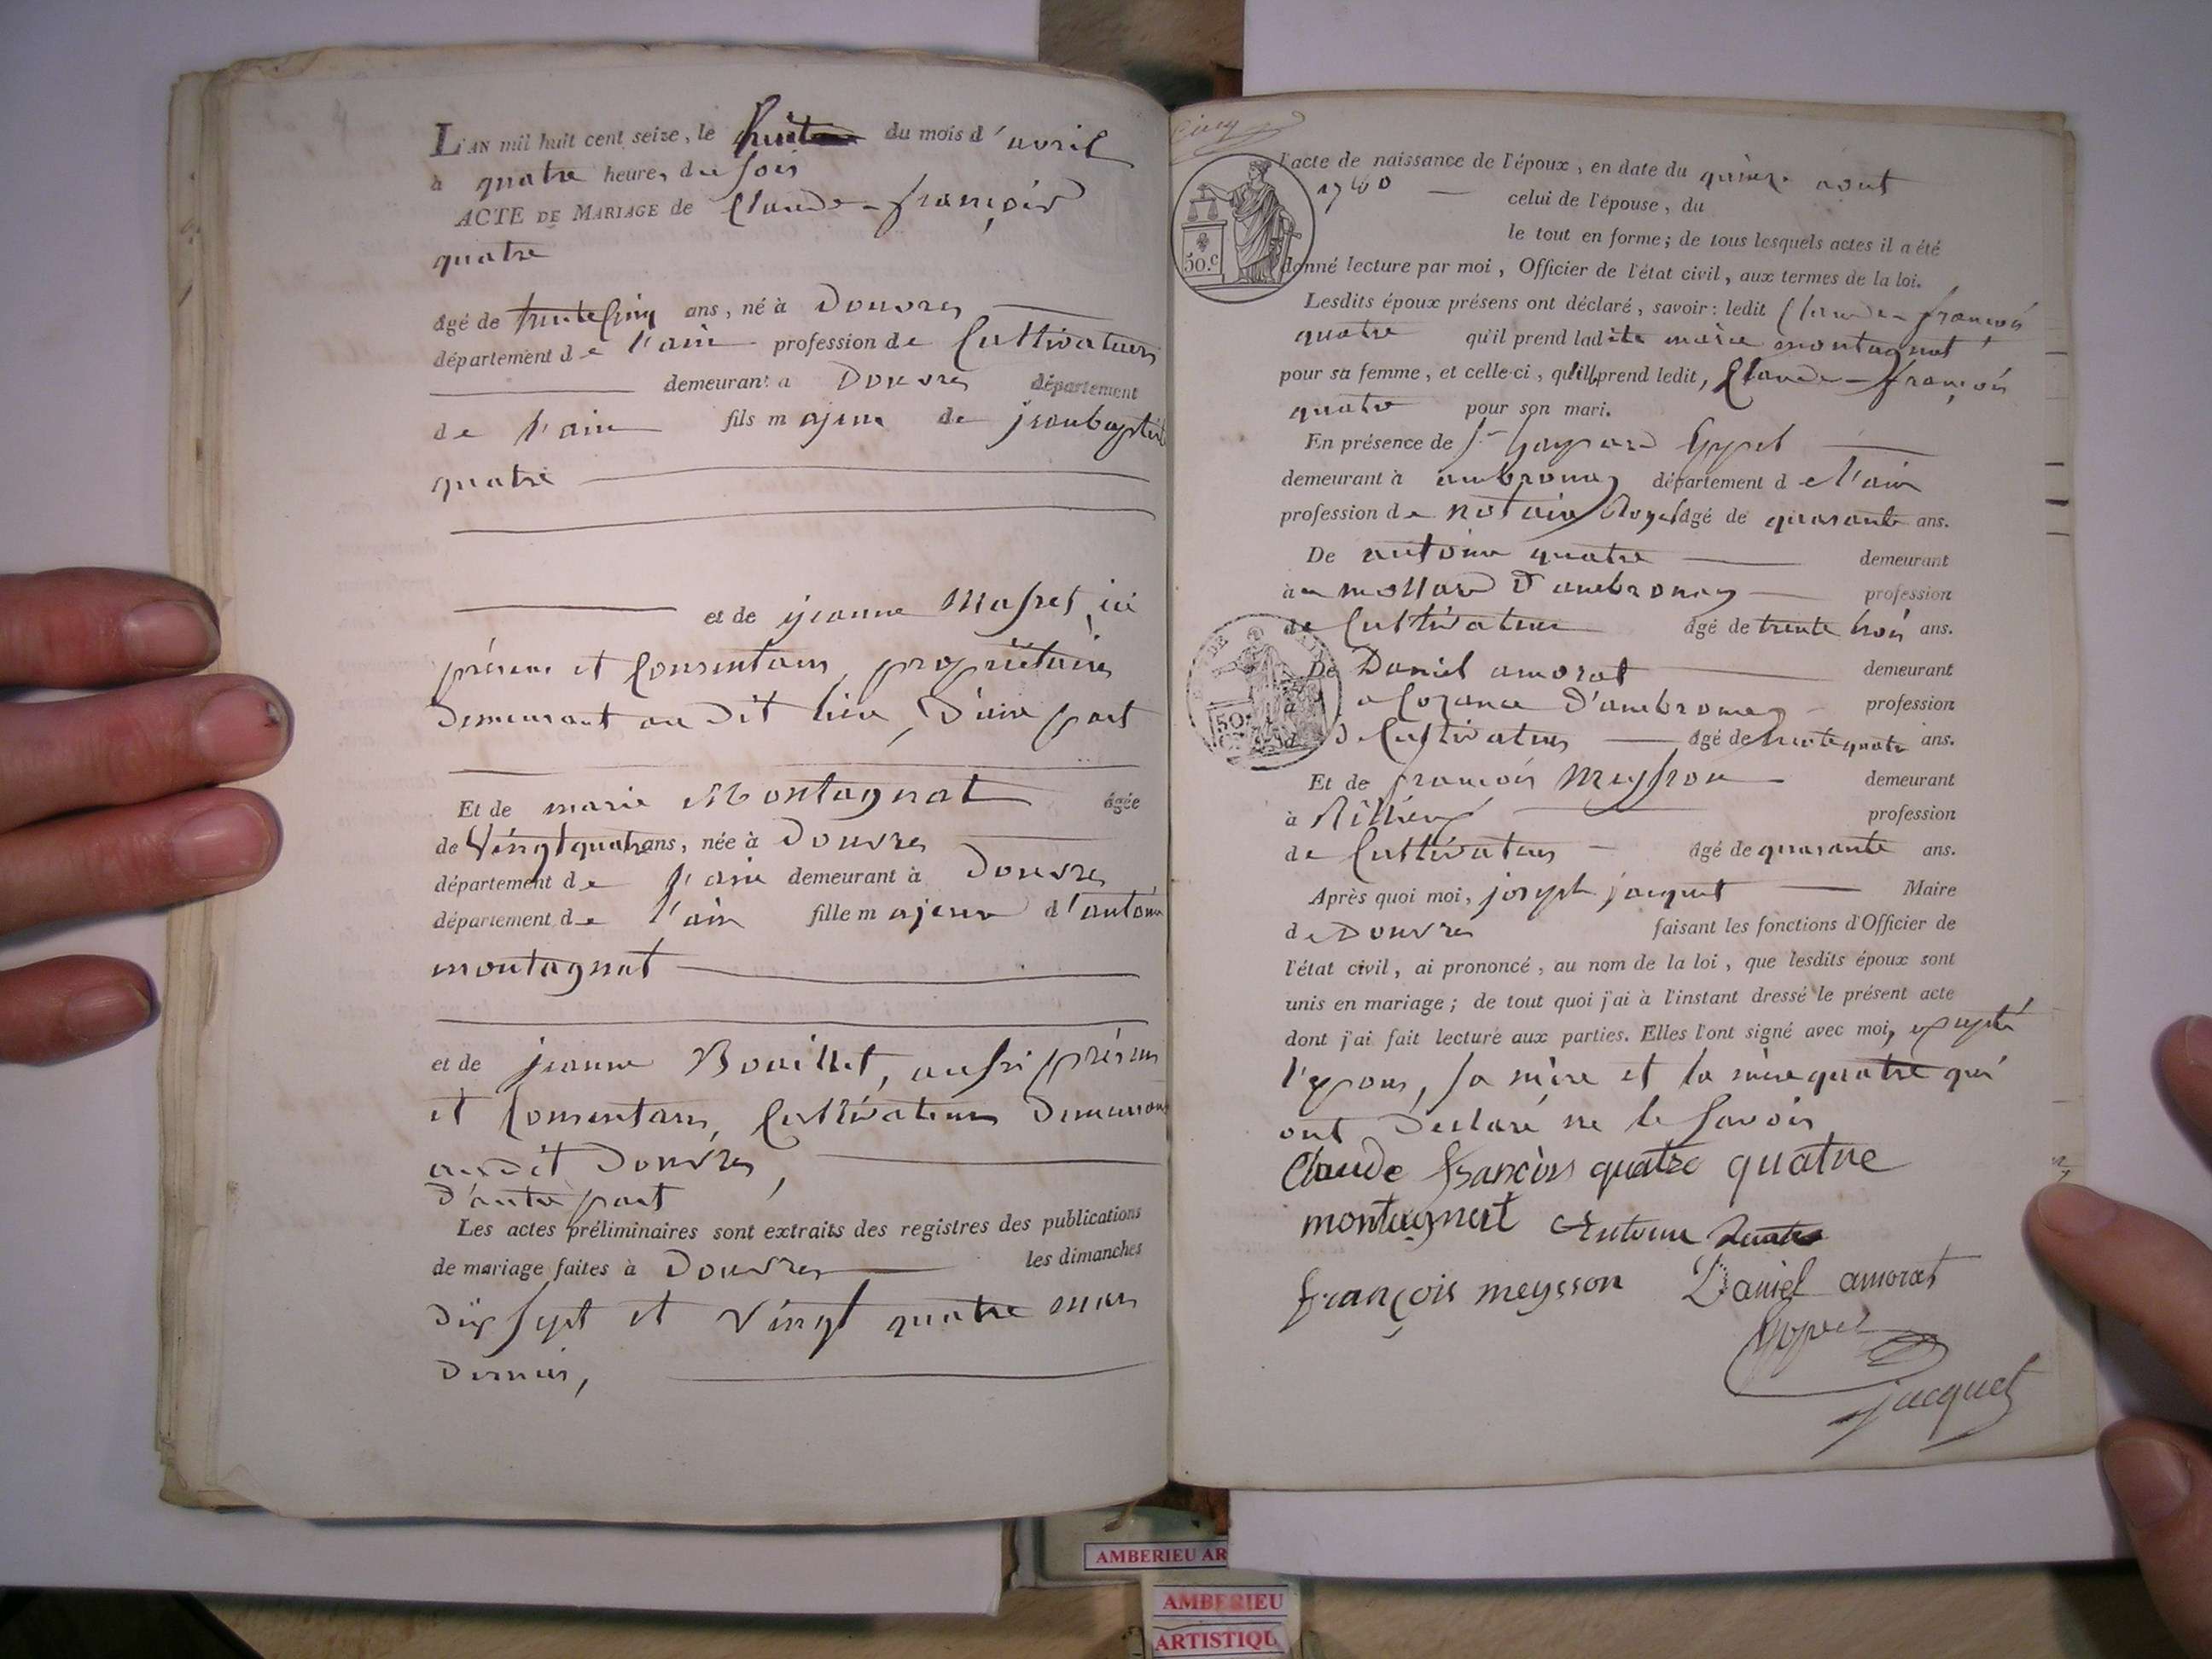 L'AN mil huit cent seize, le huit du mois d'avril
à quatre heures du soir
ACTE DE MARIAGE de Claude-françois
quatre
âgé de trente cinq ans, né à Douvres
département de l'ain profession de Cultivateur
demeurant a Douvres département
de l'ain fils majeur de jeanbaptiste
quatre
et de jeanne Masset, ici
présens et Consentans, propriétaires
Demeurant au dit lieu, D'une part
Et de marie Montagnat âgée
de Vingt quatre ans, née à Douvres
département de l'ain demeurant à Douvres
département de l'ain fille majeure d'antoine
montagnat
et de jeanne Bouillet, aussi présens
et Consentans, Cultivateurs Demeurant
audit Douvres,
D'autre part
Les actes préliminaires sont extraits des registres des publications
de mariage faites à Douvres les dimanches
Dix sept et Vingt quatre mars
Dernier,
Cinq
l'acte de naissance de l'époux, en date du quinze aout
celui de l'épouse, du
le tout en forme; de tous lesquels actes il a été
50.c
donné lecture par moi, Officier de l'état civil, aux termes de la loi.
Lesdits époux présens ont déclaré, savoir: ledit Claude-françois
quatre qu'il prend ladite marie montagnat
pour sa femme, et celle-ci, qu'elle prend ledit, Claude-françois
quatre pour son mari.
En présence de Sr gaspard
demeurant à ambronay département de l'ain
profession de notaire Royal âgé de quarante ans.
De antoine quatre demeurant
au mollard D'ambronay profession
de Cultivateur âgé de trente trois ans.
De Daniel amorat demeurant
a Cozance D'ambronay profession
de Cultivateur âgé de trente quatre ans.
50.
Et de françois Meysson demeurant
à Rillieux profession
de Cultivateur âgé de quarante ans.
Après quoi moi, joseph jacquet Maire
de Douvres faisant les fonctions d'Officier de
l'état civil, ai prononcé, au nom de la loi, que lesdits époux sont
unis en mariage; de tout quoi j'ai à l'instant dressé le présent acte
dont j'ai fait lecture aux parties. Elles l'ont signé avec moi, excepté
l'epouse, sa mère et la mère quatre qui
ont Declaré ne le Savoir
Claude francois quatre quatre
montagnat Antoine quatre
françois meysson Daniel amorat
jacquet
AMBERIEU AR
AMBERIEU
ARTISTIQU